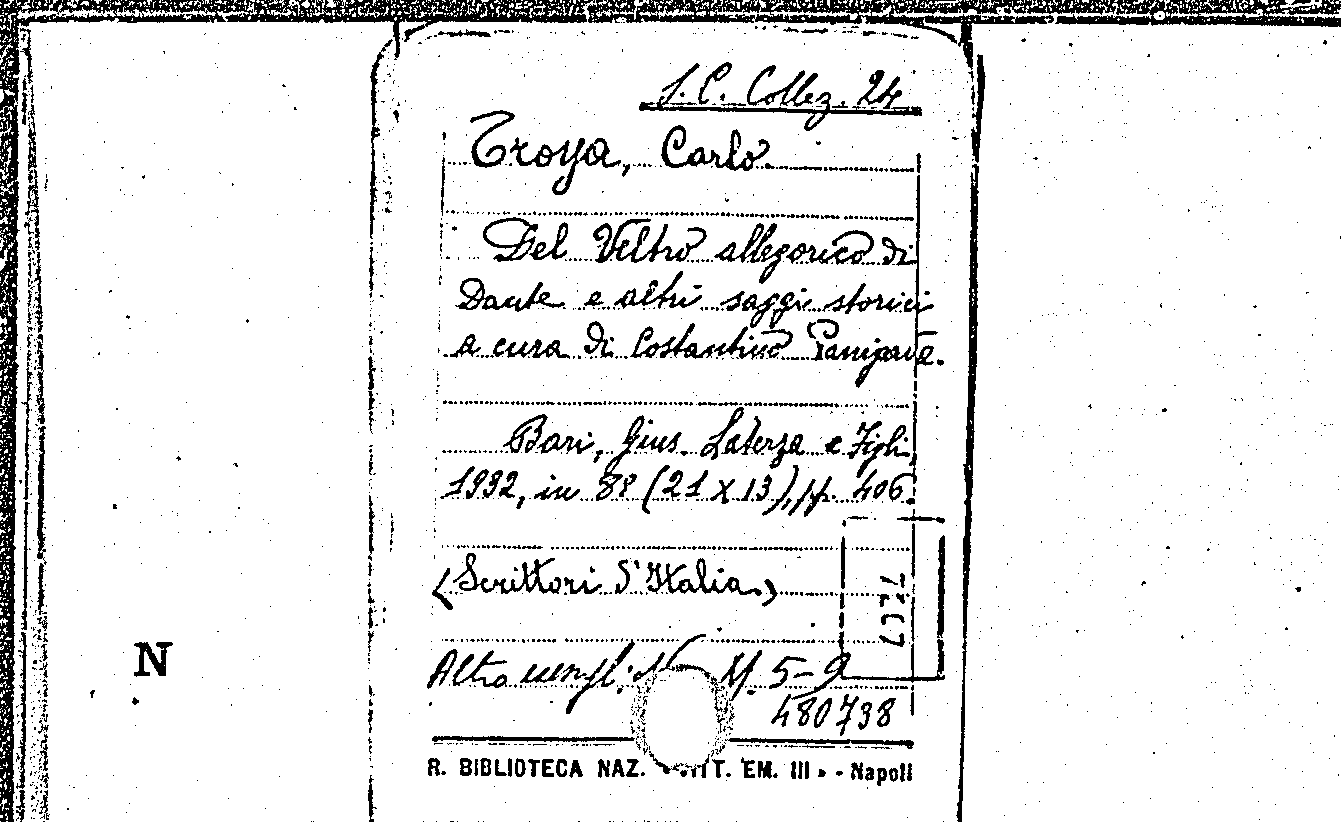 S.C. Collez. 24
Troya, Carlo.
Del Veltro allegorico di
Dante e altri saggi storici
a cura di Costantino Panigada.
Bari, Gius. Laterza e Figli,
1932, in 8º (21 x 13), pp. 406.
(Scrittori d'Italia.)
Altro M. 5-9
480738
N
R. BIBLIOTECA NAZ. T. EM. III » - Napoli